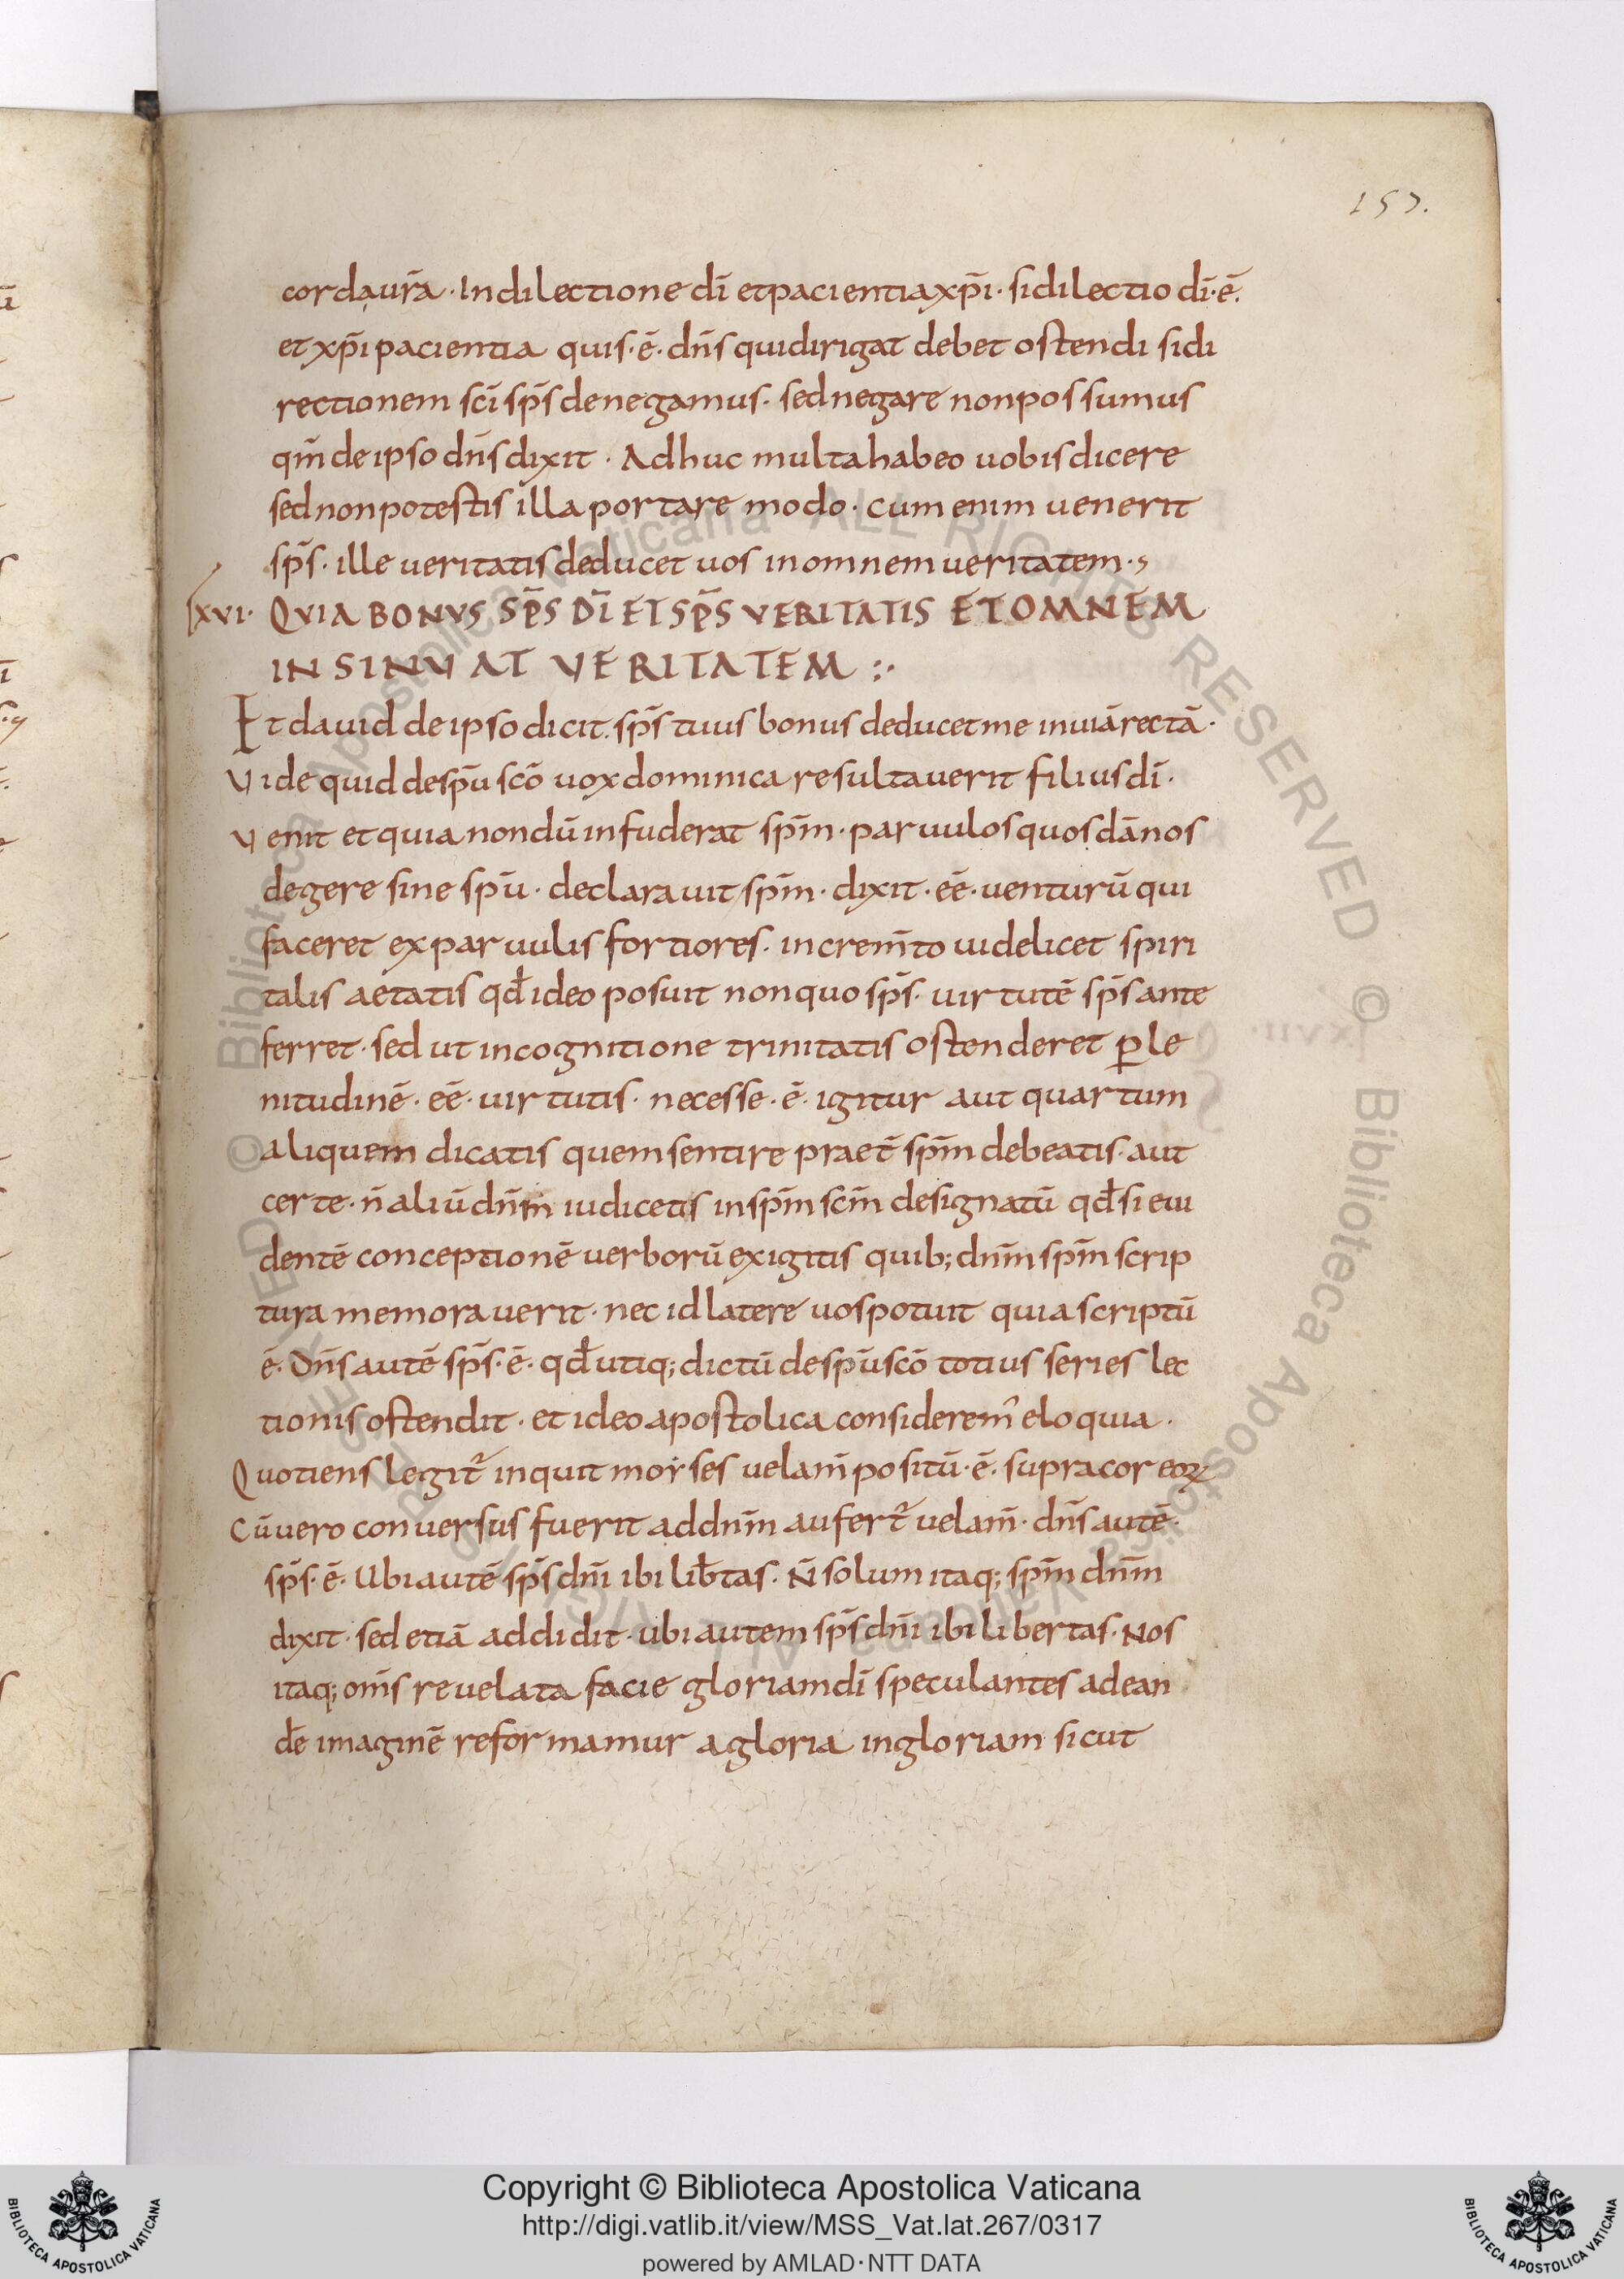 157.
corda ur̄a · In dilectione dī et pacientia xp̄i · si dilectio dī · ē ·
et xp̄i pacientia quis · ē · dn̄s qui dirigat debet ostendi si di
rectionem sc̄i sp̄s denegamus · sed negare non possumus
qm̄ de ipso dn̄s dixit · Adhuc multa habeo uobis dicere
sed non potestis illa portare modo · cum enim uenerit
sp̄s · ille ueritatis deducet uos in omnem ueritatem ·
lxvi · QVIA BONVS SP̄S DĪ ET SP̄S VERITATIS ET OMNEM
INSINVAT VERITATEM :·
Et dauid de ipso dicit · sp̄s tuus bonus deducet me in uiā rectā ·
Vide quid de sp̄u scō uox dominica resultauerit filius dī ·
Venit et quia nondū infuderat sp̄m · paruulos quosdā nos
degere sine sp̄u · declarauit sp̄m · dixit · eē · uenturū qui
faceret ex paruulis fortiores · increm̄to uidelicet spiri
talis aetatis qđ ideo posuit non quo sp̄s · uirtutē sp̄s ante
ferret · sed ut in cognitione trinitatis ostenderet ꝑ le
nitudinē · eē · uirtutis · necesse · ē · igitur aut quartum
aliquem dicatis quem sentire praet̄ sp̄m debeatis · aut
certe · n̄ aliū dn̄m iudicetis in sp̄m scm̄ designatū qđ si eui
dentē conceptionē uerborū exigitis quib; dn̄m sp̄m scrip
tura memorauerit · nec id latere uos potuit quia scriptū
ē · Dn̄s autē sp̄s · ē · qđ utiq; dictū de sp̄u scō totius series lec
tionis ostendit · et ideo apostolica considerem᾽ eloquia ·
Quotiens legit᾽ inquit moyses uelam̄ positū · ē · supra cor eoꝝ
Cū uero conuersus fuerit ad dn̄m aufert᾽ uelam̄ · dn̄s autē ·
sp̄s · ē · Ubi autē sp̄s dn̄i ibi lib̄tas · N̄ solum itaq; sp̄m dn̄m
dixit · sed etiā addidit · ubi autem sp̄s dn̄i ibi libertas · Nos
itaq; om̄s reuelata facie gloriam dī speculantes ad ean
đe imaginē reformamur a gloria in gloriam sicut
Copyright © Biblioteca Apostolica Vaticana
http://digi.vatlib.it/view/MSS_Vat.lat.267/0317
powered by AMLAD · NTT DATA
BIBLIOTECA APOSTOLICA VATICANA
BIBLIOTECA APOSTOLICA VATICANA